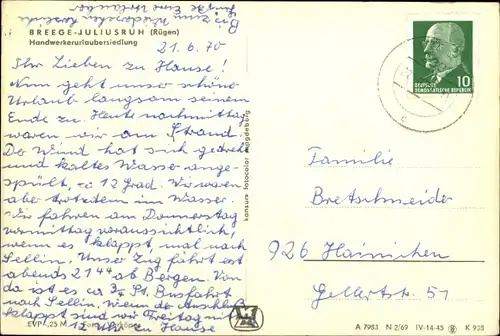 Bis zum Wiedersehen
Grüße Eure Urlauber
BREEGE-JULIUSRUH (Rügen)
Handwerkerurlaubersiedlung
21.6.70
Ihr Lieben zu Hause!
Nun geht unser schöner
Urlaub langsam seinem
Ende zu. Heute nachmittag
waren wir am Strand.
Der Wind hat sich gedreht
und kaltes Wasser ange-
spült, ca 12 Grad. Wir waren
aber trotzdem im Wasser.
Wir fahren am Donnerstag
vormittag voraussichtlich,
wenn es klappt, mal nach
Sellin. Unser Zug fährt erst
abends 21 44 ab Bergen. Von
da ist es ca 3/4 St. Busfahrt
nach Sellin. Wenn der Anschluß
klappt sind wir Freitag mit
12 Uhr zu Hause
EVP -,25 M
konsum fotocolor magdeburg
10
DEUTSCHE
DEMOKRATISCHE REPUBLIK
Familie
Bretschneider
926 Hainichen
Gellertstr. 51
A 7983 N 2/69 IV-14-45 K 938